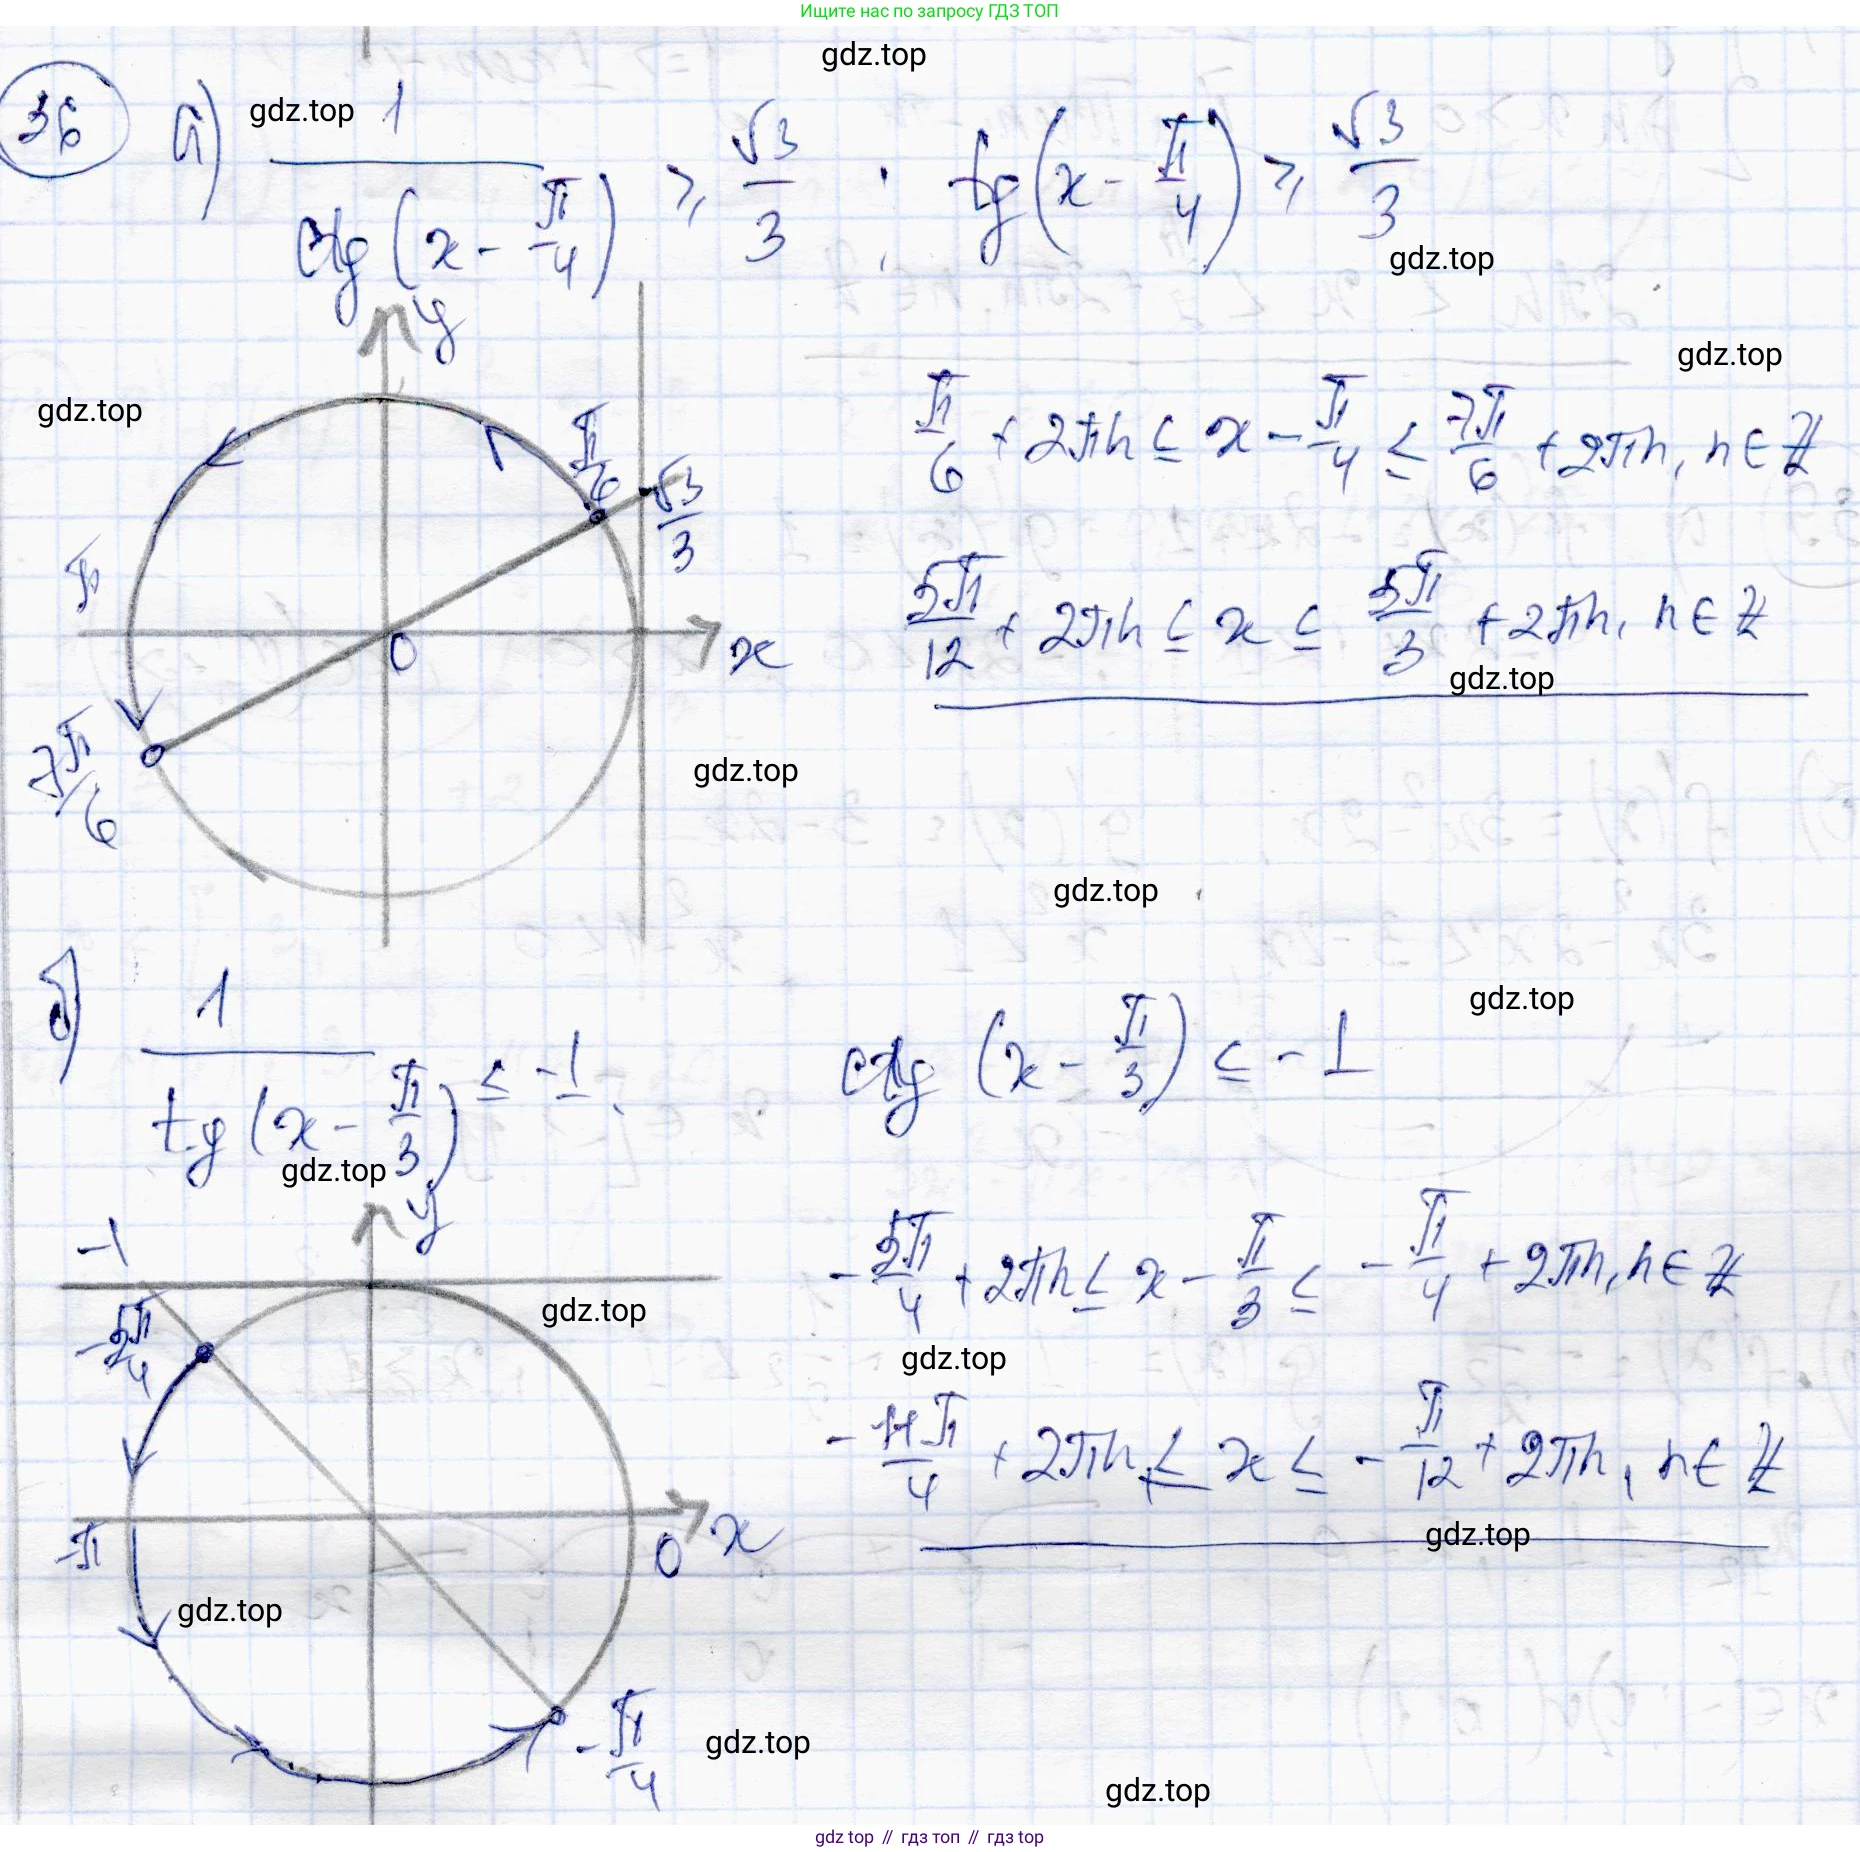 Ищите нас по запросу ГДЗ ТОП
gdz.top
36 а) 1/ctg(x - π/4) ≥ √3/3 ; tg(x - π/4) ≥ √3/3
gdz.top
gdz.top
gdz.top
gdz.top
y
π/6
√3/3
π
0
x
7π/6
π/6 + 2πn ≤ x - π/4 ≤ 7π/6 + 2πn, n ∈ Z
5π/12 + 2πn ≤ x ≤ 5π/3 + 2πn, n ∈ Z
gdz.top
gdz.top
gdz.top
б) 1/tg(x - π/3) ≤ -1. ctg(x - π/3) ≤ -1
gdz.top
gdz.top
y
-1
gdz.top
-5π/4
-π
0
x
-π/4
-5π/4 + 2πn ≤ x - π/3 ≤ -π/4 + 2πn, n ∈ Z
gdz.top
-11π/4 + 2πn ≤ x ≤ -π/12 + 2πn, n ∈ Z
gdz.top
gdz.top
gdz.top
gdz.top
gdz top // гдз топ // гдз top